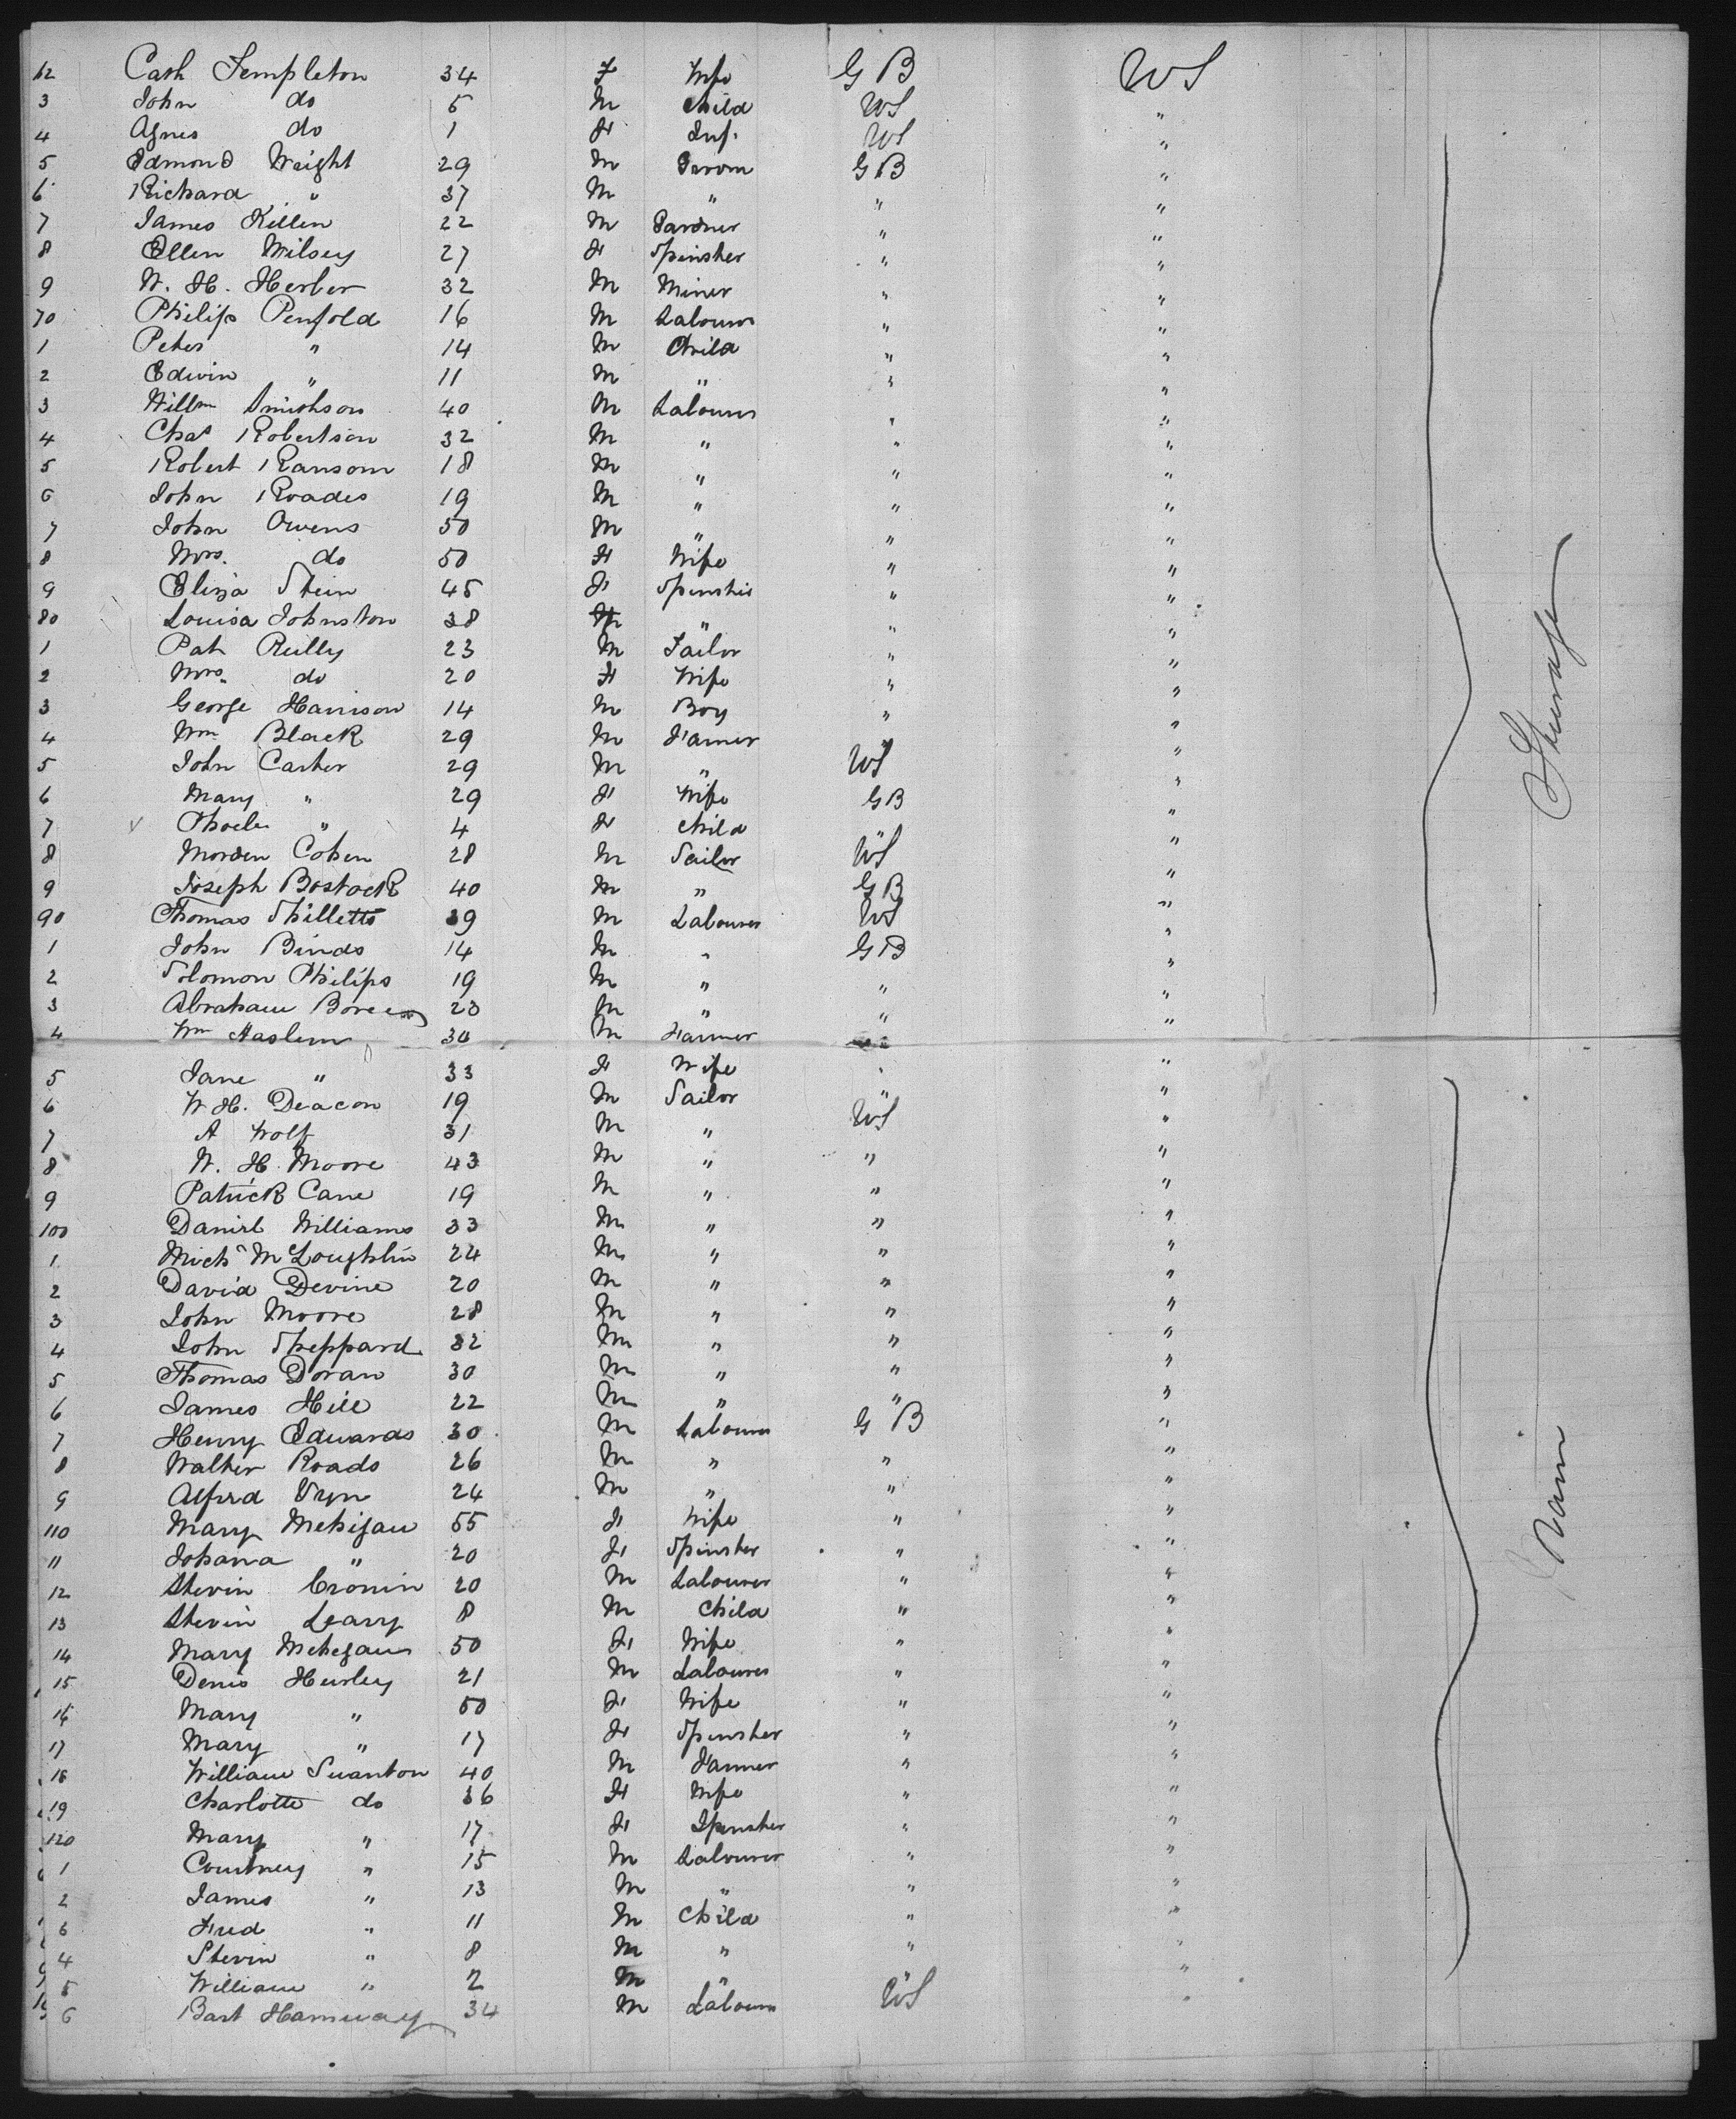 62 Cath Templeton 34 F Wife G B US
3 John do 5 M Child US "
4 Agnes do 1 F Inf. US "
5 Edmond Wright 29 M Groom G B "
6 Richard " 37 M " " "
7 James Killen 22 M Gardner " "
8 Ellen Wilsey 27 F Spinster " "
9 W. H. Herber 32 M Miner " "
70 Philip Penfold 16 M Labourer " "
1 Peter " 14 M Child " "
2 Edwin " 11 M " " "
3 Willm Smithson 40 M Labourer " "
4 Chas Robertson 32 M " " "
5 Robert Ransom 18 M " " "
6 John Roades 19 M " " "
7 John Owens 50 M " " "
8 Mrs. do 50 F Wife " "
9 Eliza Stein 45 F Spinster " "
80 Louisa Johnston 38 F " " "
1 Pat Reilly 23 M Tailor " "
2 Mrs. do 20 F Wife " "
3 George Harrison 14 M Boy " "
4 Wm Black 29 M Farmer " "
5 John Carter 29 M " US "
6 Mary " 29 F Wife G B "
7 Phoebe " 4 F Child " "
8 Morden Cohen 28 M Sailor US "
9 Joseph Bostock 40 M " G B "
90 Thomas Shilletto 39 M Labourer US "
1 John Binds 14 M " G B "
2 Solomon Philips 19 M " " "
3 Abraham 23 M " " "
4 Wm Haslem 30 M Farmer " "
5 Jane " 33 F Wife " "
6 W. H. Deacon 19 M Sailor " "
7 A Wolf 31 M " US "
8 W. H. Moore 43 M " " "
9 Patrick Cane 19 M " " "
100 Daniel Williams 33 M " " "
1 Michl McLoughlin 24 M " " "
2 David Devine 20 M " " "
3 John Moore 28 M " " "
4 John Sheppard 32 M " " "
5 Thomas Doran 30 M " " "
6 James Hill 22 M " " "
7 Henry Edwards 30 M Labourer G B "
8 Walter Roads 26 M " " "
9 Alfred 24 M " " "
110 Mary Mehigan 55 F Wife " "
11 Johana " 20 F Spinster " "
12 Stevin Cronin 20 M Labourer " "
13 Stevin Leary 8 M Child " "
14 Mary Mehegan 50 F Wife " "
15 Denis Hurley 21 M Labourer " "
16 Mary " 50 F Wife " "
17 Mary " 17 F Spinster " "
18 William Swanton 40 M Farmer " "
19 Charlotte do 36 F Wife " "
120 Mary " 17 F Spinster " "
1 Courtney " 15 M Labourer " "
2 James " 13 M " " "
3 Fred " 11 M Child " "
4 Stevin " 8 M " " "
5 William " 2 M " " "
6 Bart 34 M Labourer US "
Steerage